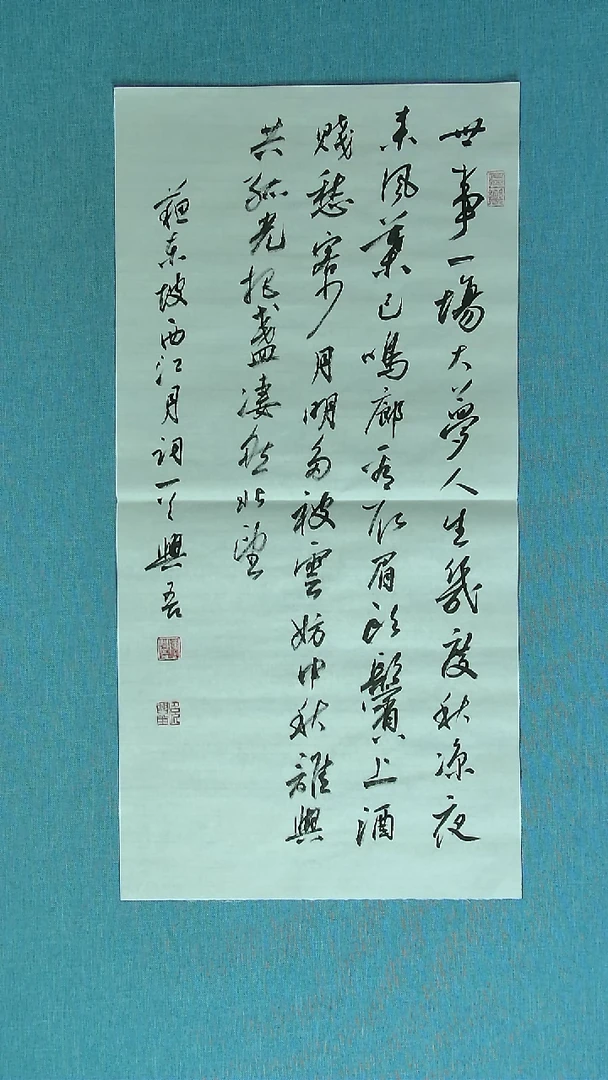 世事一場大夢人生幾度秋涼夜
来風葉已鳴廊看取眉頭鬢上酒
賤愁客少月明多被雲妨中秋誰與
共孤光把盞凄然北望
蘇東坡西江月詞一首興吾